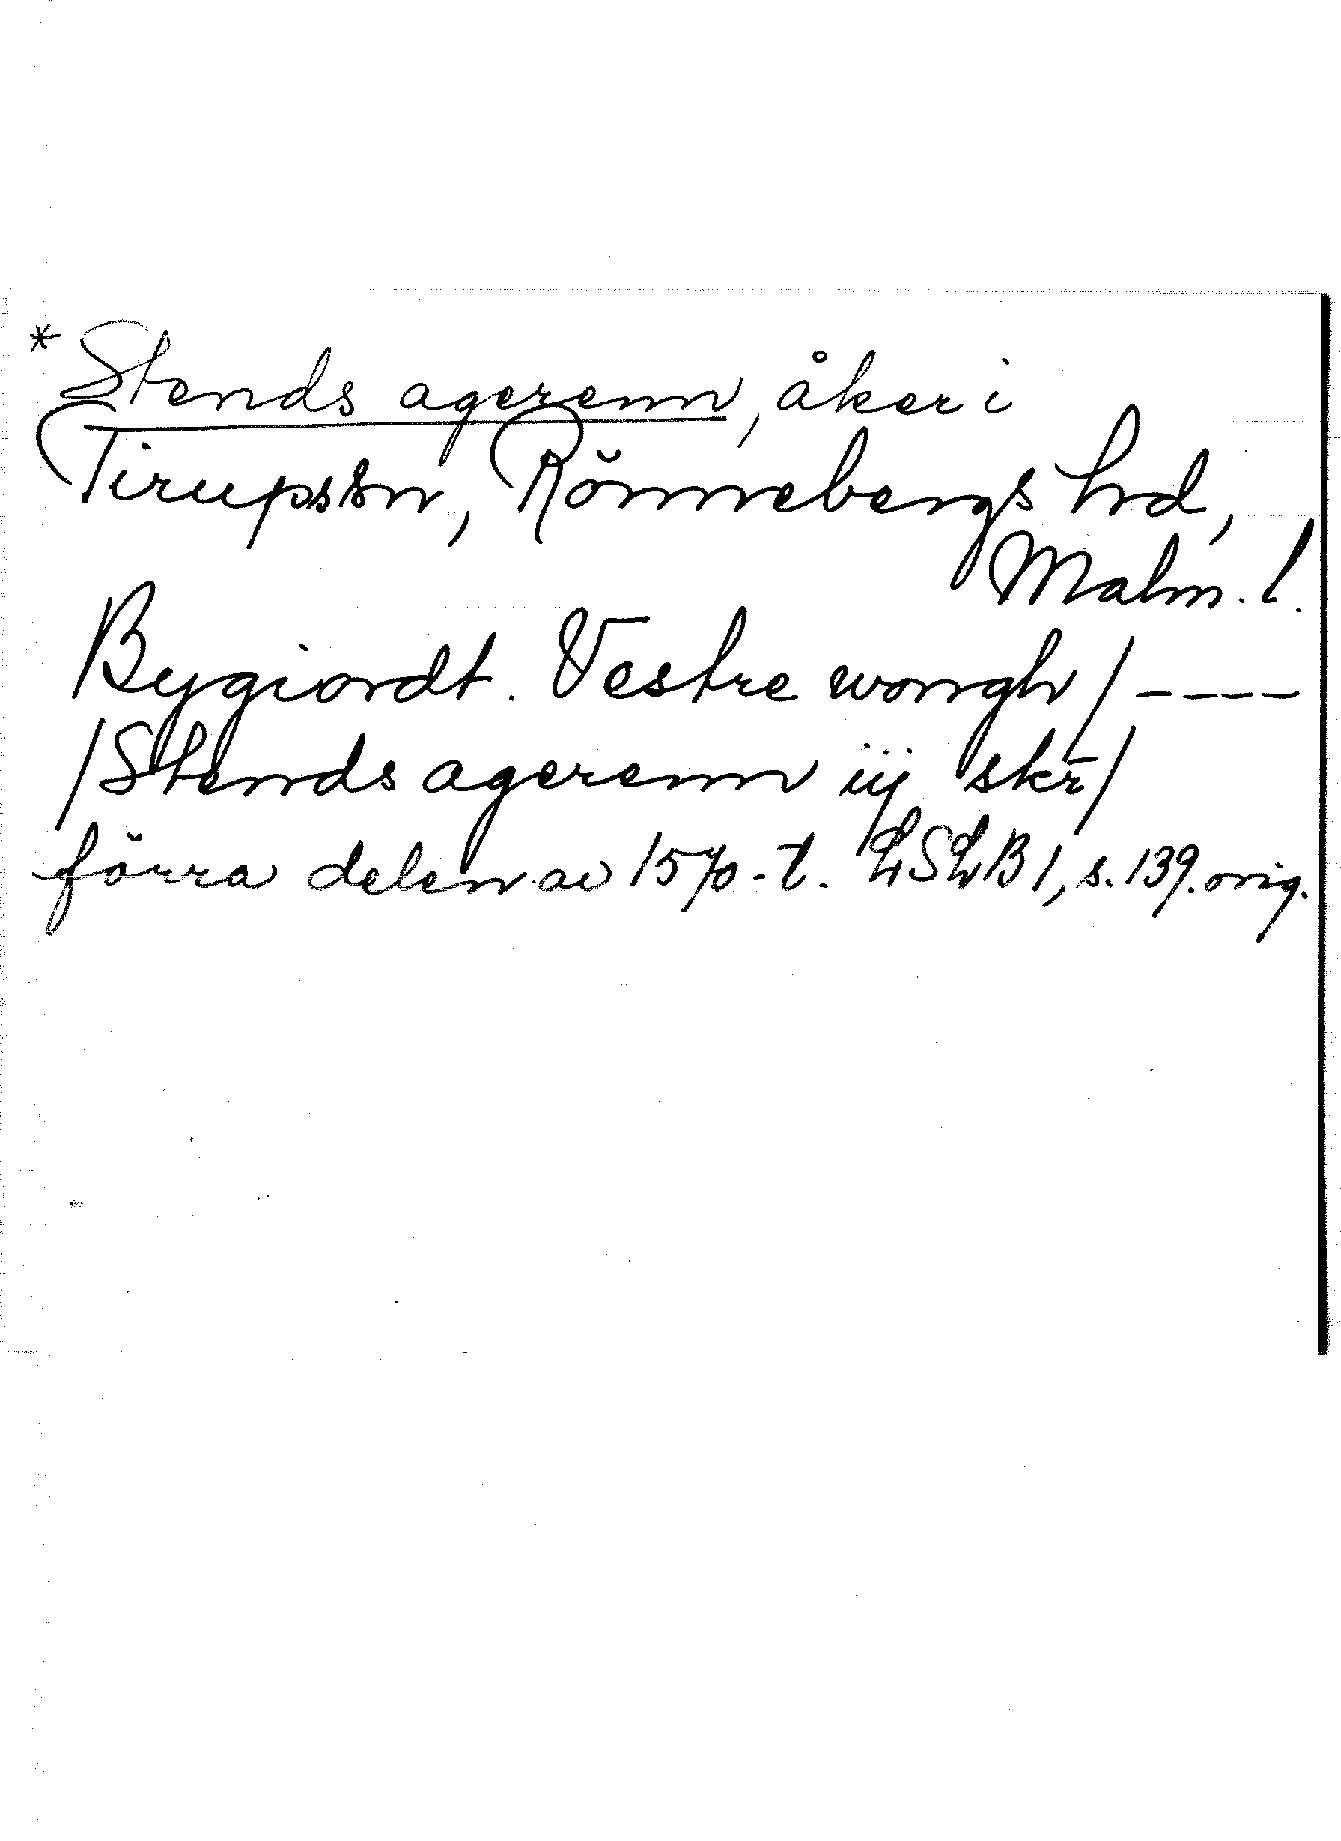 * Stends agerenn, åker i
Tirups sn, Rönnebergs hd,
Malm. l.
Bygiordt. Vestre wongh /----
/Stends agerenn iij skr/
förra delen av 1570-t. LSLB 1, s. 139. orig.